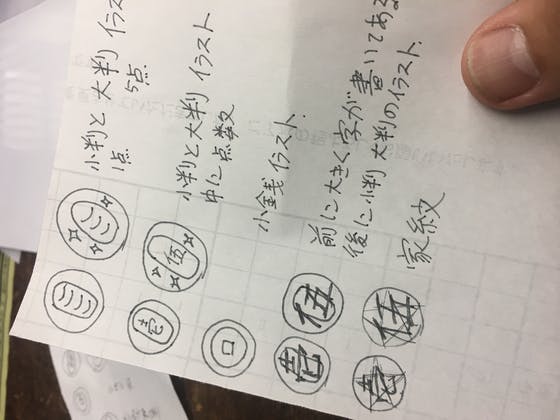 小判と大判 イラスト
1点 5点
小判と大判 イラスト
中に点数
伍
小銭イラスト.
前に大きく字が書いてある
後に小判 大判のイラスト.
壱 伍
家紋
壱 伍